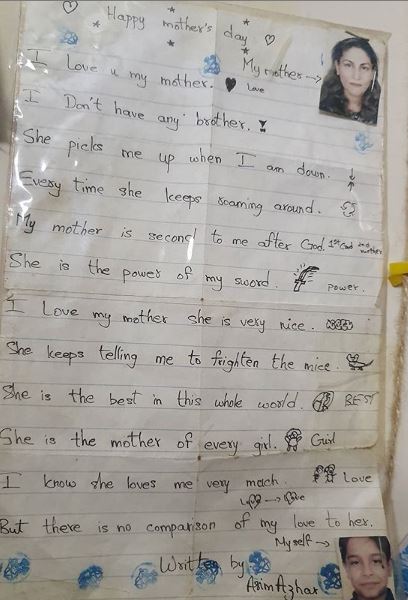 Happy mother's day
My mother →
I Love u my mother. Love
I Don't have any brother.
She picks me up when I am down.
Every time she keeps roaming around.
My mother is second to me after God. 1st God 2nd mother
She is the power of my sword. power.
I Love my mother she is very nice.
She keeps telling me to frighten the mice.
She is the best in this whole world. BEST
She is the mother of every girl. Girl
I know she loves me very much. Love
Love → Love
But there is no comparison of my love to her.
Myself →
Written by
Asim Azhar